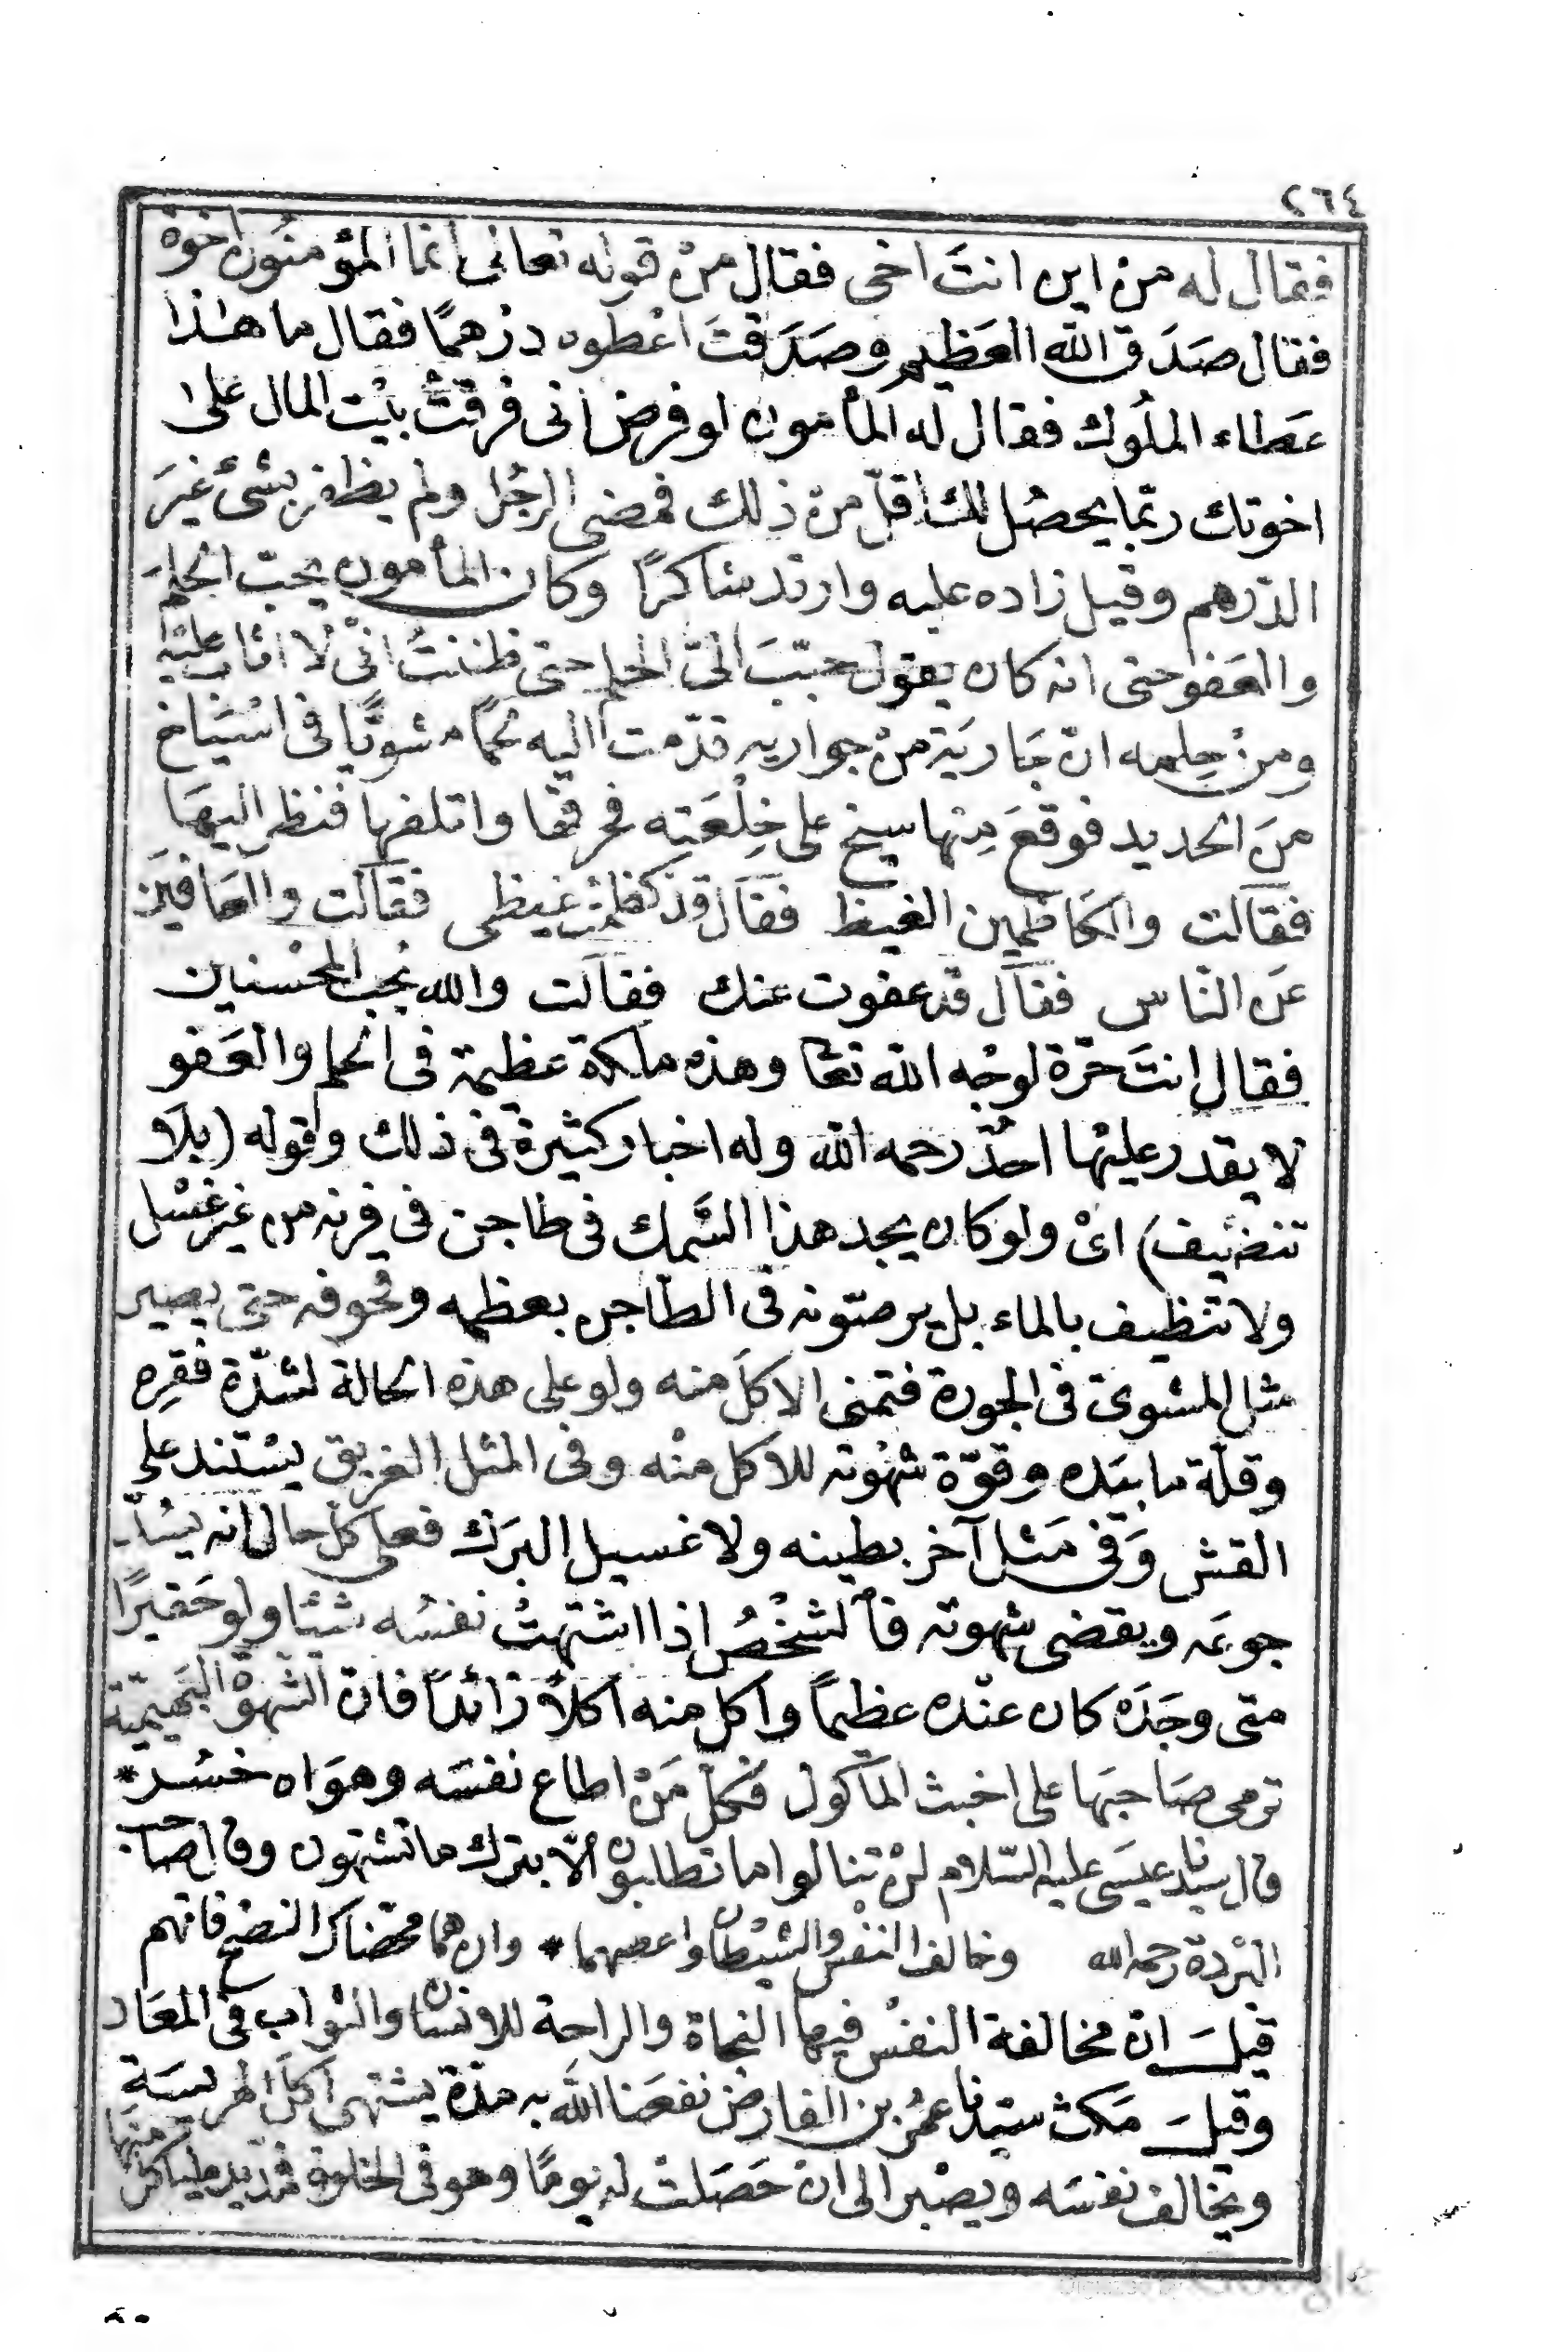 ٢٦٤
فقال له منْ اين انتَ اخى فقال منْ قوله تعالى انما المؤمنُون اخوة
فقال صَدَق الله العَظيم وصَدَقتَ اعْطوه درْهمًا فقال ما هٰذا
عَطاء الملُوك فقال له المأمون لو فرض انى فرقتُ بيْت المال على
اخوتك ربّما يحصُل لك اقلّ منْ ذلك فمضى الرجُل ولم يظفر بشئ غيَر
الدّرهم وقيل زاده عليه وارتد شاكرًا وكان المأمون يحبّ الحلم
والعَفو حتى انه كان يقول حبّبَ الىّ الحلم حتى ظننتُ انّى لا اثاب عليْه
ومنْ حِلمه انّ جَاريَة منْ جواريه قدّمت اليه لحمًا مشويًّا فى اسْيَاخ
منَ الحديد فوقعَ مِنها سيخ على خِلْعَته فحرقها واتلفها فنظر اليهَا
فقالت والكاظمين الغيظ فقال قدْ كظمْتُ غيظى فقالت والعَافينَ
عَن النّاس فقال قدْ عفوت عنك فقالت والله يُحبّ المحْسنين
فقال انتَ حَرّة لوجْه الله تعا وهذه ملكة عظيمة فى الحلم والعَفو
لا يقدر عليْها احدٌ رحمه الله وله اخبار كثيرة فى ذلك وقوله (بلا
تنضيف) اىْ ولو كان يجد هذا السَّمك فى طاجن فى فرنه من غيْر غسْل
ولا تنْظيف بالماء بل يرصّونه فى الطّاجن بعظمه وخوفه حتى يصير
مثل المشوىّ فى الجورة فتمنى الاكلَ منه ولو على هذه الحالة لشدّة فقرِه
وقلّة ما بيَده وقوّة شهْوته للاكل منْه وفى المثل الغريق يسْتند على
القش وَفى مَثل آخر بطينه ولا غسيل البرَك فعلى كلّ حال انه يسُدّ
جوعَه ويقضى شهوته فالشخْصُ اذا اشتهتْ نفسُه شيئا ولو حَقيرًا
متى وجَدَه كان عنْده عظيمًا واكل منه اكلاً زائدًا فانّ الشهْوة البَهيميّة
ترمى صَاحبَها على اخبث المأكول فكلّ مَنْ اطاع نفسَه وهوَاه خسُر *
قال سيّدنا عيسَى عليه السّلام لنْ تنالوا ما تطلبون الّا بترك ما تشتهون وقال صاحب
البرْدة رحمه الله وخالف النفْس والشيْطان واعصهما * وان هما محّضاك النصْح فاتهم
قيلَ انّ مخالفة النفسْ فيها النجاة والراحة للانسْان والثواب فى المعَاد
وقيلَ مَكث سيّدنا عمُر بن الفارض نفعَنا الله به مدّة يشتهى اكل الهريسَة
ويخالف نفسَه ويصْبر الى انْ حَصَلتْ له يومًا وهو فى الخلوة فمدّ يده ليأكل منهَا